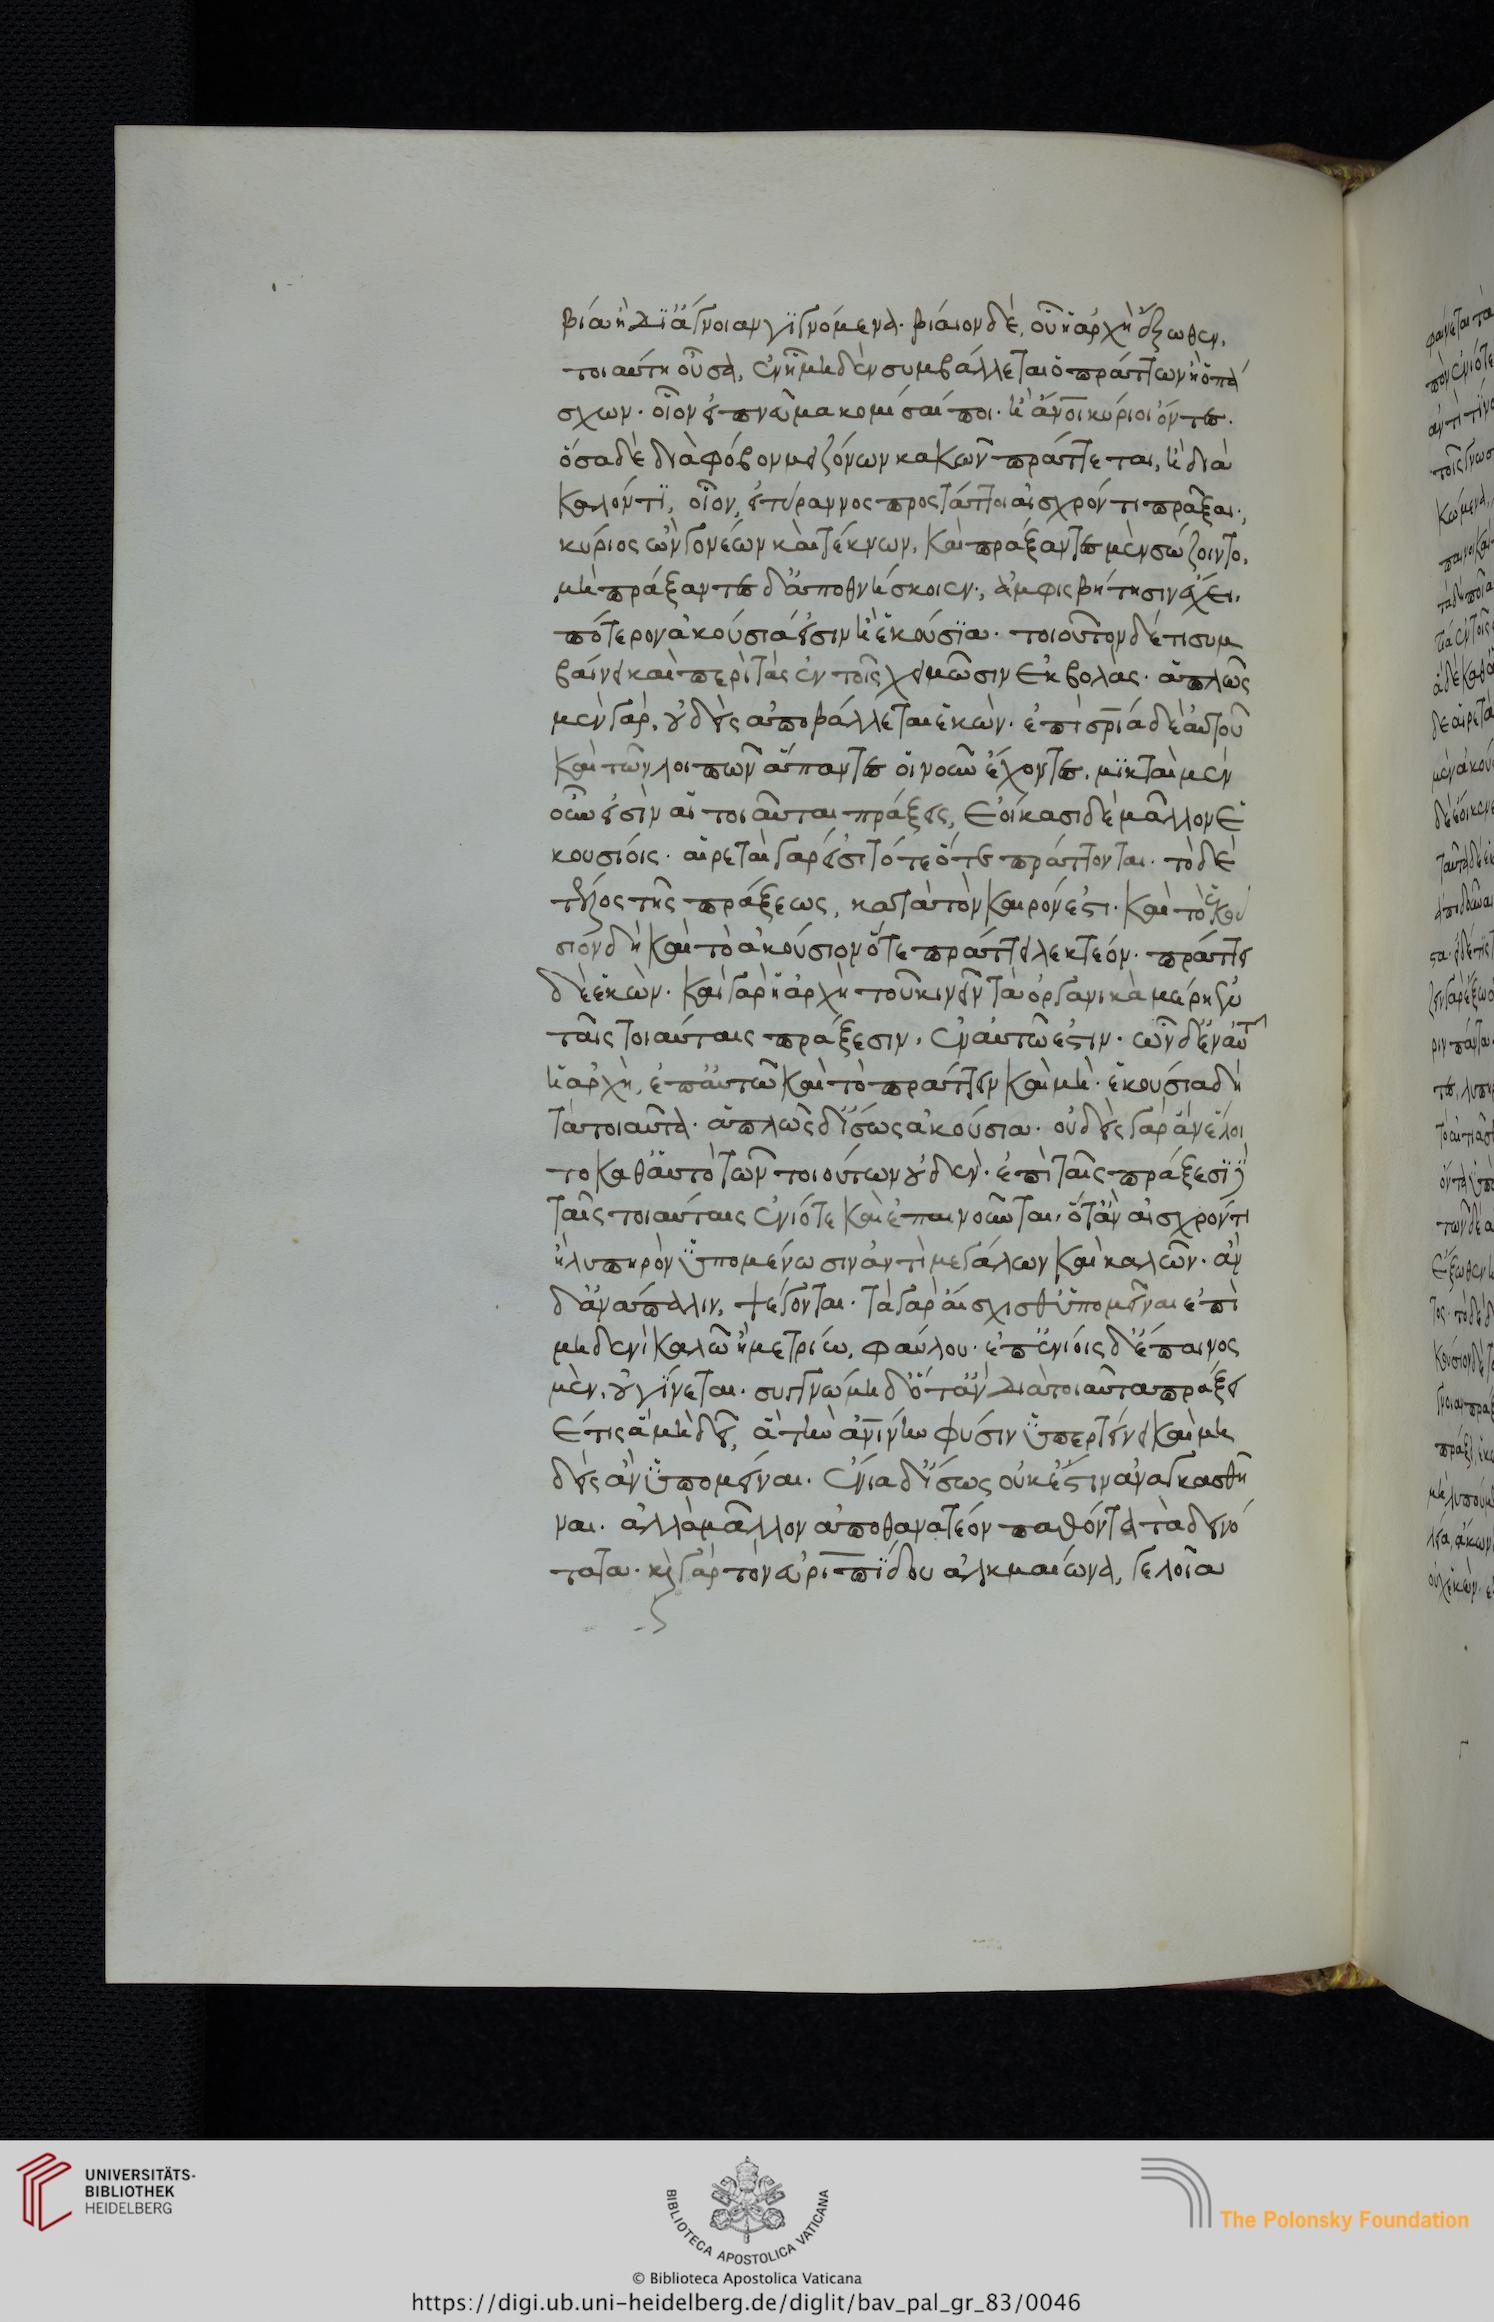 βία ἢ δϊ ἄγνοιαν γϊγνόμενα. βίαιον δὲ, οὗ ἡ ἀρχὴ ἔξωθεν,
τοιαύτη οὖσα, ἐν ᾗ μηδὲν συμβάλλεται ὁ πράττων ἢ ὁ πά
σχων. οἷον εἰ πνεῦμα κομίσαι ποι. ἢ ἄνοι κύριοι ὄντες.
ὅσα δὲ διὰ φόβον μειζόνων κακῶν πράττεται, ἢ διὰ
καλόν τϊ, οἷον, εἰ τύραννος προστάττοι αἰσχρόν τι πρᾶξαι,
κύριος ὢν γονέων καὶ τέκνων, καὶ πράξαντες μὲν σώζοιντο,
μὴ πράξαντες δ' ἀποθνήσκοιεν, ἀμφισβήτησιν ἔχει,
πότερον ἀκούσιά εἰσιν ἢ ἑκούσϊα. τοιοῦτον δέ τι συμ
βαίνει καὶ περὶ τὰς ἐν τοῖς χειμῶσιν ἐκβολὰς. ἁπλῶς
μὲν γὰρ, οὐδεὶς ἀποβάλλεται ἑκὼν. ἐπὶ σρ̅ία δὲ αὑτοῦ
καὶ τῶν λοιπῶν ἅπαντες οἱ νοῦν ἔχοντες. μϊκταὶ μὲν
οὖν εἰσὶν αἱ τοιαῦται πράξεις, ἐοίκασι δὲ μᾶλλον ἑ
κουσίοις. αἱρεταὶ γάρ εἰσι τότε ὅτε πράττονται. τὸ δὲ
τέλος τῆς πράξεως, κατὰ τὸν καιρόν ἐστι. καὶ τὸ ἑκού
σιον δὴ καὶ τὸ ἀκούσιον ὅτε πράττει λεκτέον. πράττει
δὲ ἑκὼν. καὶ γὰρ ἡ ἀρχὴ τοῦ κινεῖν τὰ ὀργανικὰ μέρη ἐν
ταῖς τοιαύταις πράξεσιν, ἐν αὐτῶ ἐστιν. ὧν δ' ἐν αὐτ
ἡ ἀρχὴ, ἐπ' αὐτῶ καὶ τὸ πράττειν καὶ μὴ. ἑκούσια δὴ
τὰ τοιαῦτα. ἁπλῶς δ' ἴσως ἀκούσια. οὐδεὶς γὰρ ἂν ἕλοι
το καθ' αὑτὸ τῶν τοιούτων οὐδὲν. ἐπὶ ταῖς πράξεσϊ δὲ
ταῖς τοιαύταις ἐνίοτε καὶ ἐπαινοῦνται, ὅταν αἰσχρόν τι
ἢ λυπηρὸν ὑπομένωσιν ἀντὶ μεγάλων καὶ καλῶν. ἂν
δ' ἀνάπαλιν, ψέγονται. τὰ γὰρ αἴσχισθ' ὑπομεῖναι ἐπὶ
μηδενὶ καλῶ ἢ μετρίω, φαύλου. ἐπ' ἐνίοις δ' ἔπαινος
μὲν, οὐ γίνεται. συγγνώμη δ' ὅταν διὰ τοιαῦτα πράξει
ἔ τις ἃ μὴ δεῖ, ἃ τὴν ἀν̅ίνην φύσιν ὑπερτείνει καὶ μη
δεὶς ἂν ὑπομεῖναι. ἔνια δ' ἴσως οὐκ ἔστιν ἀναγκασθῆ
ναι. ἀλλὰ μᾶλλον ἀποθανατέον παθόντα τὰ δεινό
τατα. κ γὰρ τὸν εὐριπϊίδου ἀλκμαίωνα, γελοῖα
UNIVERSITÄTS-
BIBLIOTHEK
HEIDELBERG
BIBLIOTECA APOSTOLICA VATICANA
The Polonsky Foundation
© Biblioteca Apostolica Vaticana
https://digi.ub.uni-heidelberg.de/diglit/bav_pal_gr_83/0046